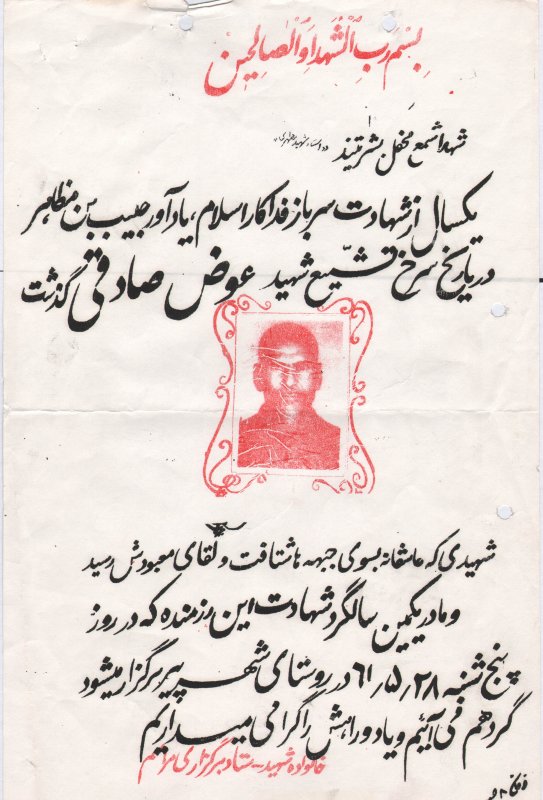 بسم رب الشهداء و الصالحین
شهدا شمع محفل بشریتند «استاد شهید مطهری»
یکسال از شهادت سرباز فداکار اسلام، یادآور حبیب بن مظاهر
در تاریخ سرخ تشیع شهید عوض صادقی گذشت
شهیدی که عاشقانه بسوی جبهه ها شتافت و بلقای معبودش رسید
و ما در یکمین سالگرد شهادت این رزمنده که در روز
پنج شنبه ۲۸ر۵ر۶۱ در روستای شهر پیر برگزار میشود
گرد هم می آییم و یاد و راهش را گرامی میداریم
خانواده شهید - ستاد برگزاری مراسم